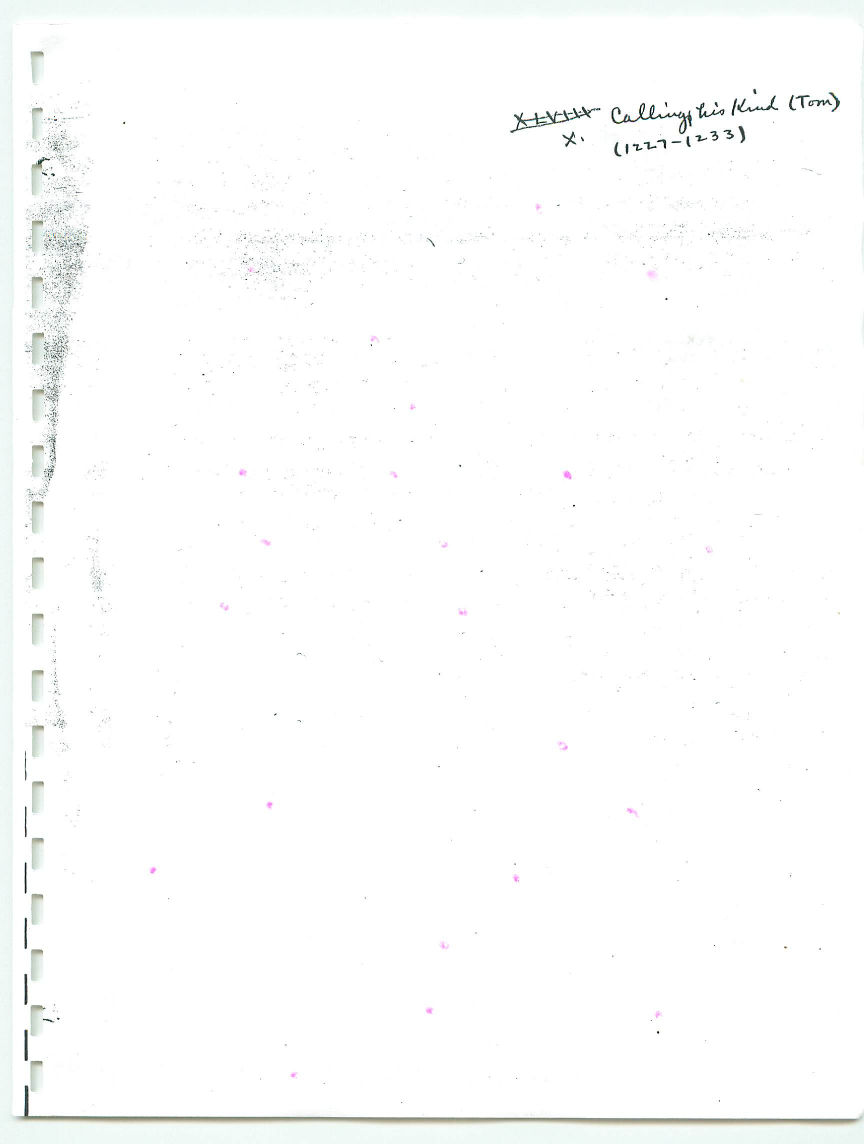 XLVIII Calling his Kind (Tom)
X. (1227-1233)